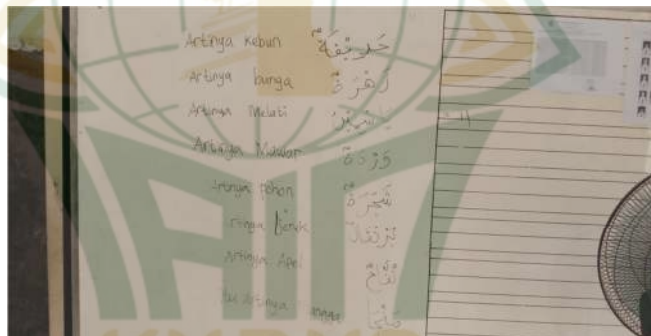 Artinya kebun حديقة
Artinya bunga زهرة
Artinya Melati ياسمين
Artinya Mawar وردة
Artinya pohon شجرة
Artinya Jeruk برتقال
Artinya Apel تفاح
Artinya Mangga